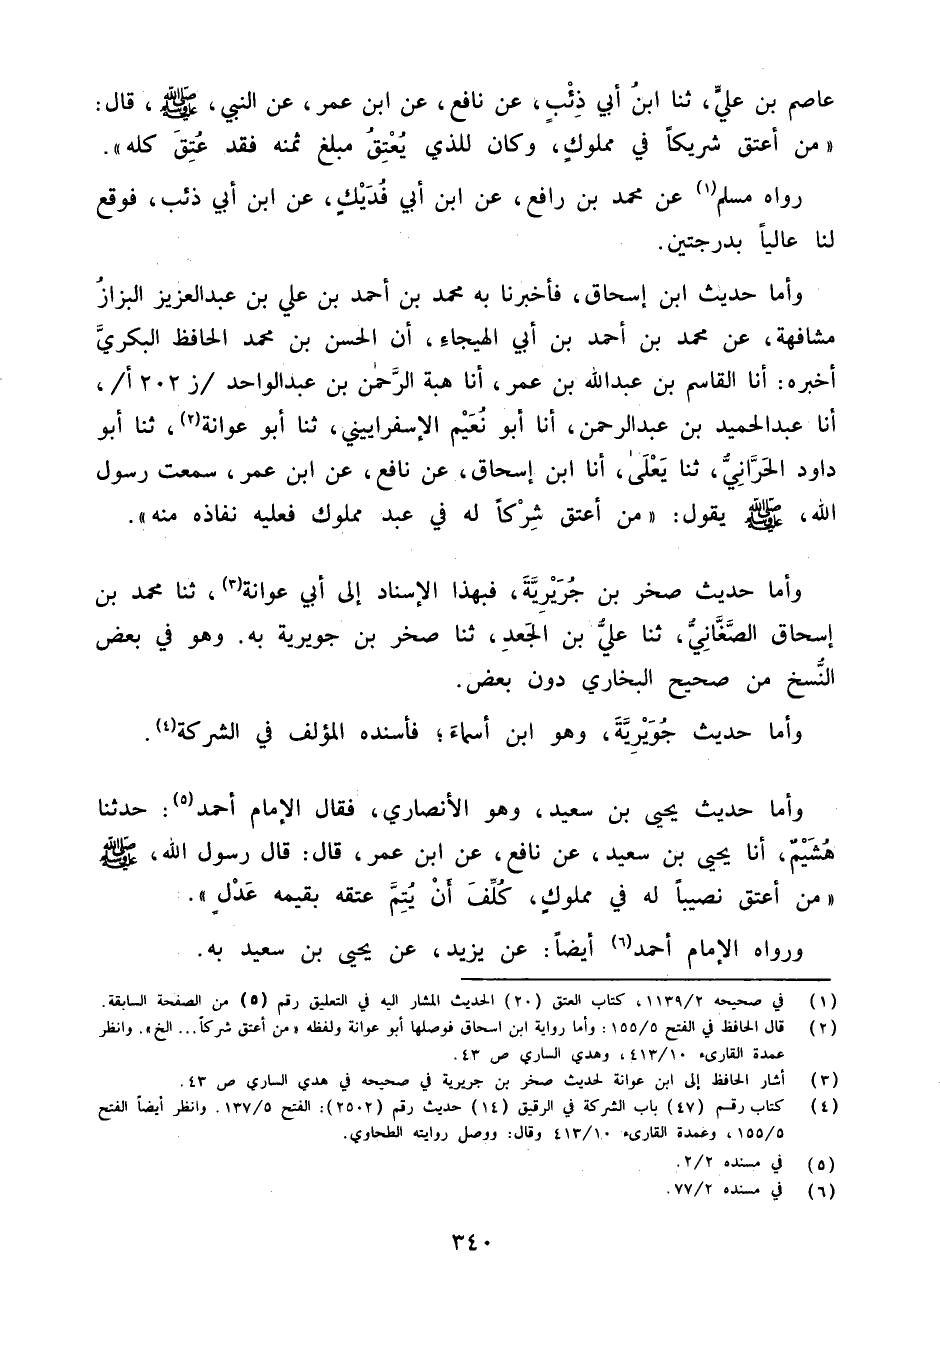 عاصم بن عليٍّ، ثنا ابنُ أبي ذِئْبٍ، عن نافع، عن ابن عمر، عن النبي، ﷺ، قال:
«من أعتق شريكاً في مملوكٍ، وكان للذي يُعْتِقُ مبلغ ثمنه فقد عُتِقَ كله».
رواه مسلم(١) عن محمد بن رافع، عن ابن أبي فُدَيْكٍ، عن ابن أبي ذئب، فوقع
لنا عالياً بدرجتين.
وأما حديث ابن إسحاق، فأخبرنا به محمد بن أحمد بن علي بن عبدالعزيز البزازُ
مشافهة، عن محمد بن أحمد بن أبي الهيجاء، أن الحسن بن محمد الحافظ البكريَّ
أخبره: أنا القاسم بن عبدالله بن عمر، أنا هبة الرَّحمٰن بن عبدالواحد /ز ٢٠٢ أ/،
أنا عبدالحميد بن عبدالرحمن، أنا أبو نُعَيْم الإسفراييني، ثنا أبو عوانة(٢)، ثنا أبو
داود الحَرَّانِيُّ، ثنا يَعْلَىٰ، أنا ابن إسحاق، عن نافع، عن ابن عمر، سمعت رسول
الله، ﷺ يقول: «من أعتق شِرْكاً له في عبد مملوك فعليه نفاذه منه».
وأما حديث صخر بن جُوَيْرِيَّةَ، فبهذا الإسناد إلى أبي عوانة(٣)، ثنا محمد بن
إسحاق الصَّغَّانِيُّ، ثنا عليُّ بن الجَعدِ، ثنا صخر بن جويرية به. وهو في بعض
النُّسخ من صحيح البخاري دون بعض.
وأما حديث جُوَيْرِيَّةَ، وهو ابن أسماءَ؛ فأسنده المؤلف في الشركة(٤).
وأما حديث يحيى بن سعيد، وهو الأنصاري، فقال الإمام أحمد(٥): حدثنا
هُشَيْمٌ، أنا يحيى بن سعيد، عن نافع، عن ابن عمر، قال: قال رسول الله، ﷺ
«من أعتق نصيباً له في مملوكٍ، كُلِّفَ أَنْ يُتِمَّ عتقه بقيمه عَدْلٍ».
ورواه الإمام أحمد(٦) أيضاً: عن يزيد، عن يحيى بن سعيد به.
(١) في صحيحه ١١٣٩/٢، كتاب العتق (٢٠) الحديث المشار اليه في التعليق رقم (٥) من الصفحة السابقة.
(٢) قال الحافظ في الفتح ١٥٥/٥: وأما رواية ابن اسحاق فوصلها أبو عوانة ولفظه «من أعتق شركاً... الخ». وانظر
عمدة القارىء ٤١٣/١٠، وهدي الساري ص ٤٣.
(٣) أشار الحافظ إلى ابن عوانة لحديث صخر بن جريرية في صحيحه في هدي الساري ص ٤٣.
(٤) كتاب رقم (٤٧) باب الشركة في الرقيق (١٤) حديث رقم (٢٥٠٢): الفتح ١٣٧/٥. وانظر أيضاً الفتح
١٥٥/٥، وعمدة القارىء ٤١٣/١٠ وقال: ووصل روايته الطحاوي.
(٥) في مسنده ٢/٢.
(٦) في مسنده ٧٧/٢.
٣٤٠